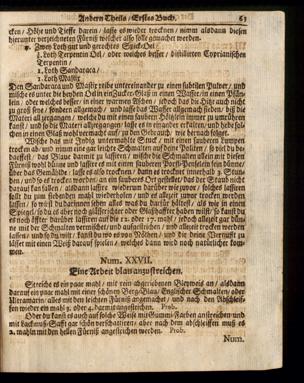 Andern Theils / Erstes Buch. 61
cken / Höhe und Tieffe darein / lasse es wieder trocken / nimm alsdann diesen
hierunter verzeichneten Fürniß welcher also solle gemachet werden.
Zwey Loth gut und gerechtes Spick-Oel
Loth Terpentin Oel / oder welches besser / distillirten Coprianischen
Terpentin /
1. Loth Sandaraca /
1. Loth Mastix
Den Sandaraca und Mastix reibe untereinander zu einen subtilen Pulver / und
mische es unter die beyden Oele in ein Zucker-Glaß in einen
lein / oder welches besser / in einer warmen Aschen / jedoch das die Hitz auch nicht
zu groß seye / sondern allgemach / und lasse das Wasser allgemach sieden / biß die
Materi all zergangen / welche du mit einem saubern Höltzlein immer zu umrühren
hast / und so die Materi all zergangen / lasse es in einander erkalten / und hebe sol-
chen in einem Glaß wohl vermacht auf / zu den Gebrauch / wie hernach folget.
Wische das mit Indig untermahlte Stuck / mit einen saubern Lumpen
trocken ab / und nimm nur gar leichte Schmalten auf deine Politen / so viel du be-
darffst / das Blaue damit zu lassiren / mische die Schmalten allein mit diesen
Fürniß wohl dünn und lassire es mit einen saubern Pensel fein dünn/
über das Gemählde / lasse es also trocknen / dann es trocknet innerhalb 3. Stun-
den / und so es trocken worden / an ein sauberes Ort gestellet / das der Staub nicht
darauf kan fallen / alsdann lassire wiederum darüber wie zuvor / solches lassiren
solst du zum siebenden mahl wiederholen / und es allezeit zuvor trocken werden
lassen / so wirst du darinnen sehen alles was du darfür hältest / als wie in einen
Spiegel / so du es aber noch gläßhaffter oder Glaßhaffter haben wilst / so kanst du
es noch öffter darüber lassiren auf die 12. oder 17. mahl / jedoch allezeit gar dünn
nie mit der Schmalten vermischet / und aufgestrichen / und allezeit trocken werden
lassen / und so du wilt / kanst du wo es von Wolcken / und die deine Derrierte zu
lässet mit einen Weiß darauf spielen / welches dann wird noch natürlicher kom-
men.
Num. XXVII.
Eine Arbeit blau anzustreichen.
Streiche es ein paar mahl / mit rein abgeriebenen Bleyweiß an / alsdann
darauf ein paar mahl mit einer schönen Berg-Blau / Englischer Schmalten / oder
Ultramarin / alles mit den leichten Fürniß angemachet / und nach den Abschleif-
fen wieder ein mahl 3. oder 4. darmit angestrichen. Prob.
Oder du kanst es auch auf solche Weise mit Gummi-Farben anstreichen / und
mit Lackmuß-Safft gar schön verschattiren / aber nach dem abschleiffen muß es
2. mahl in mit den hellen Fürniß angestrichen werden. Prob.
Num.